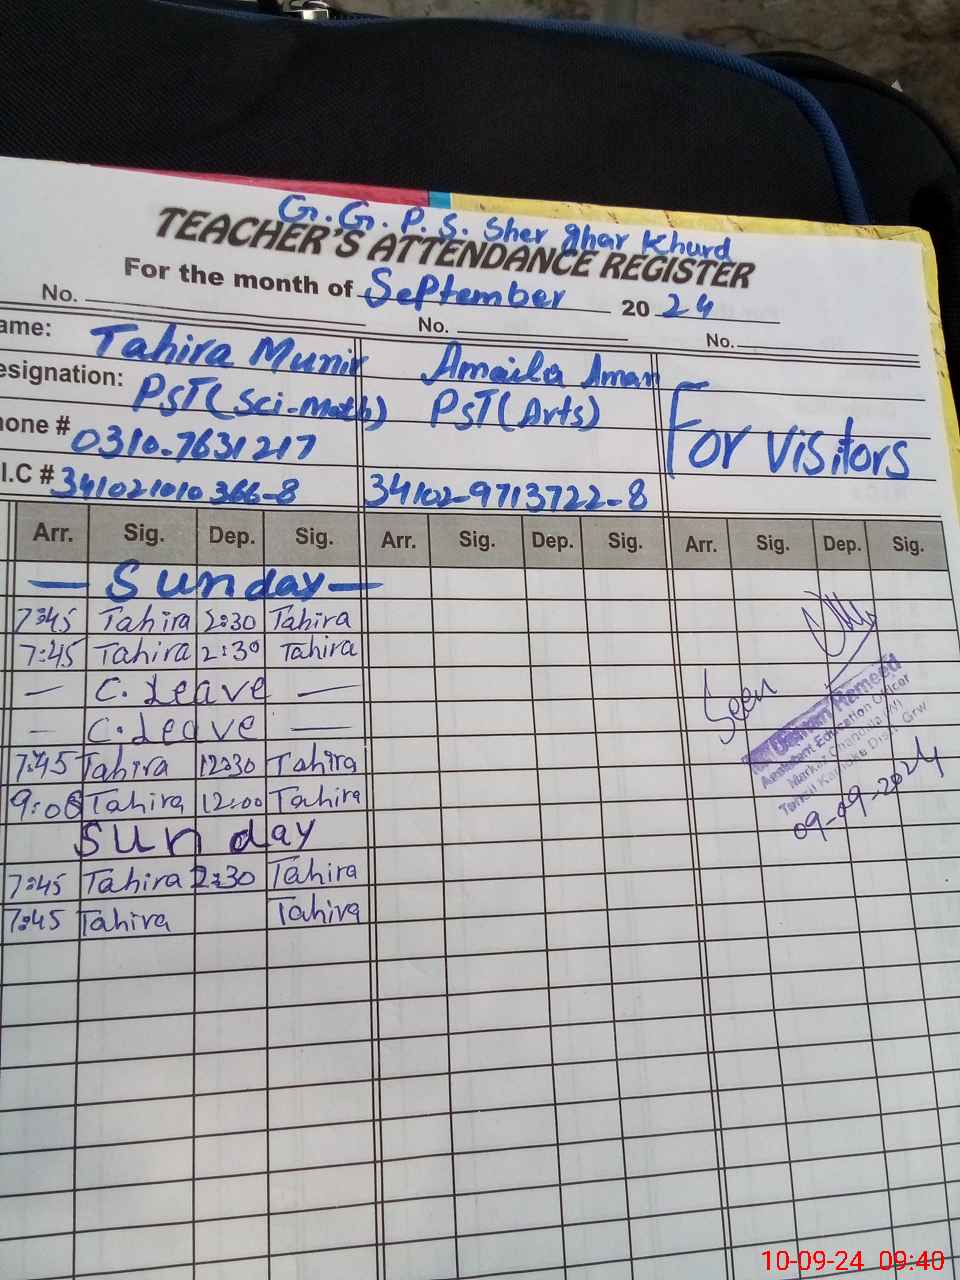 G.G.P.S. Sher ghar Khurd
TEACHER'S ATTENDANCE REGISTER
For the month of September 2024
No. No. No.
ame: Tahira Munir Amaila Aman
esignation: PST(Sci-Math) PST(Arts) For Visitors
hone # 0310-7631217
.I.C # 341021010366-8 34102-9713722-8
Arr. Sig. Dep. Sig. Arr. Sig. Dep. Sig. Arr. Sig. Dep. Sig.
— Sunday —
7:45 Tahira 2:30 Tahira
7:45 Tahira 2:30 Tahira
— C. Leave —
Seen
— C. Leave —
Hameed
Assistant Education Officer
Markaz
Tehsil Kamoke Distt. Grw
09-09-2024
7:45 Tahira 12:30 Tahira
9:00 Tahira 12:00 Tahira
Sunday
7:45 Tahira 2:30 Tahira
7:45 Tahira Tahira
10-09-24 09:40